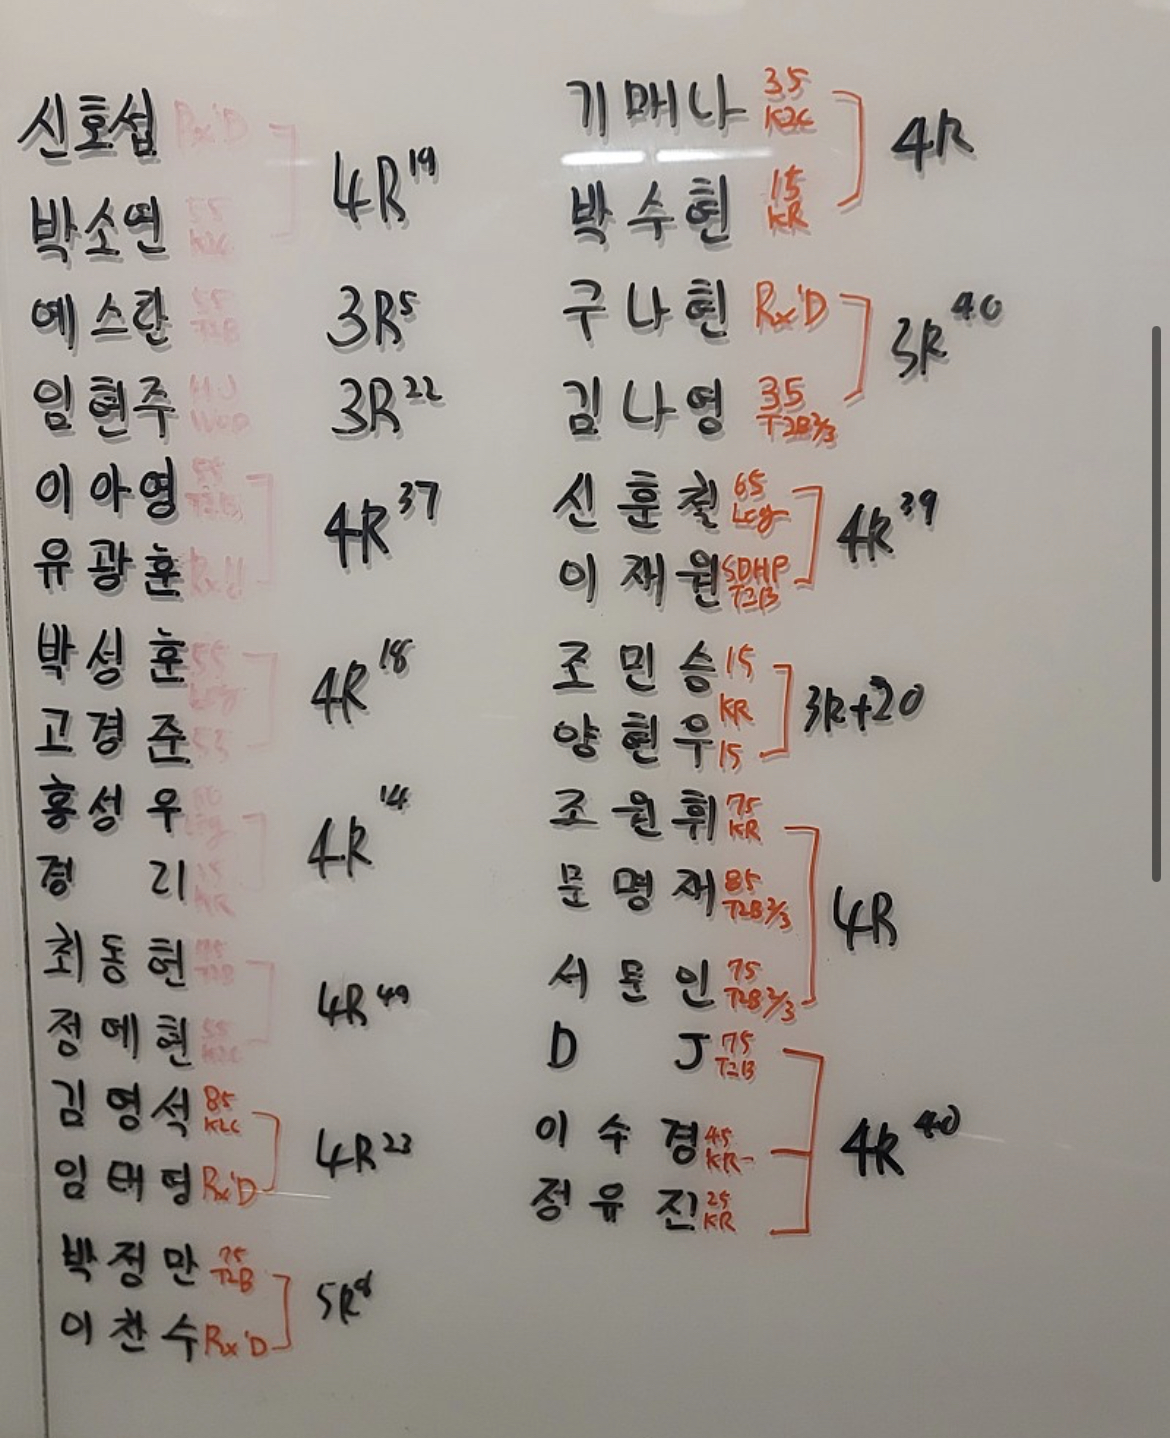 신호섭 Rx'D
4R 19
박소연 55 K2C
예스란 55 T2B 3R 5
임현주 HJ WOD 3R 22
이아영 55 T2B
4R 37
유광훈 Rx'D
박성훈 55 Leg
4R 18
고경준 55
홍성우 Leg
4R 14
경리 15 KR
최동현 T2B
4R 49
정예현 55 K2C
김영석 85 K2C
4R 23
임태영 Rx'D
박정만 75 T2B
5R 8
이찬수 Rx'D
기매나 35 K2C
4R
박수현 15 KR
구나현 Rx'D
3R 40
김나영 35 T2B 2/3
신훈철 65 Leg
4R 39
이재원 SDHP T2B
조민승 15
KR
3R+20
양현우 15
조원휘 75 KR
문명재 85 T2B 2/3
4R
서문인 75 T2B 2/3
D J 75 T2B
이수경 45 KR
4R 40
정유진 25 KR